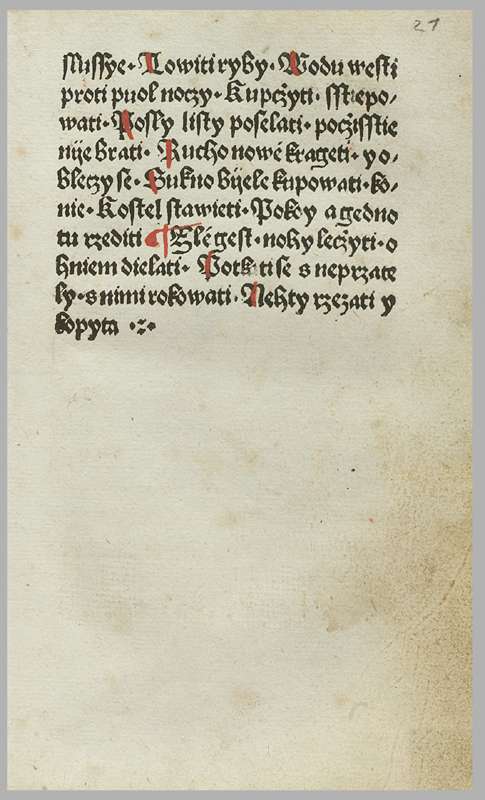 21
slussye · Lowiti ryby · Wodu westi
proti puol noczy · Kupcżyti · sstiepo-
wati · Posly listy poselati · pocżisstie
nije brati · Rucho nowé krageti · y o-
bleczy se · Sukno bijele kupowati · ko-
nie · Kostel stawieti · Pokoy a gedno
tu rzediti ¶ Zlé gest · nohy lecżyti · o
hniem dielati · Potkati se s neprzate
ly · s nimi rokowati · Nehty rzezati y
kopyta ·:·